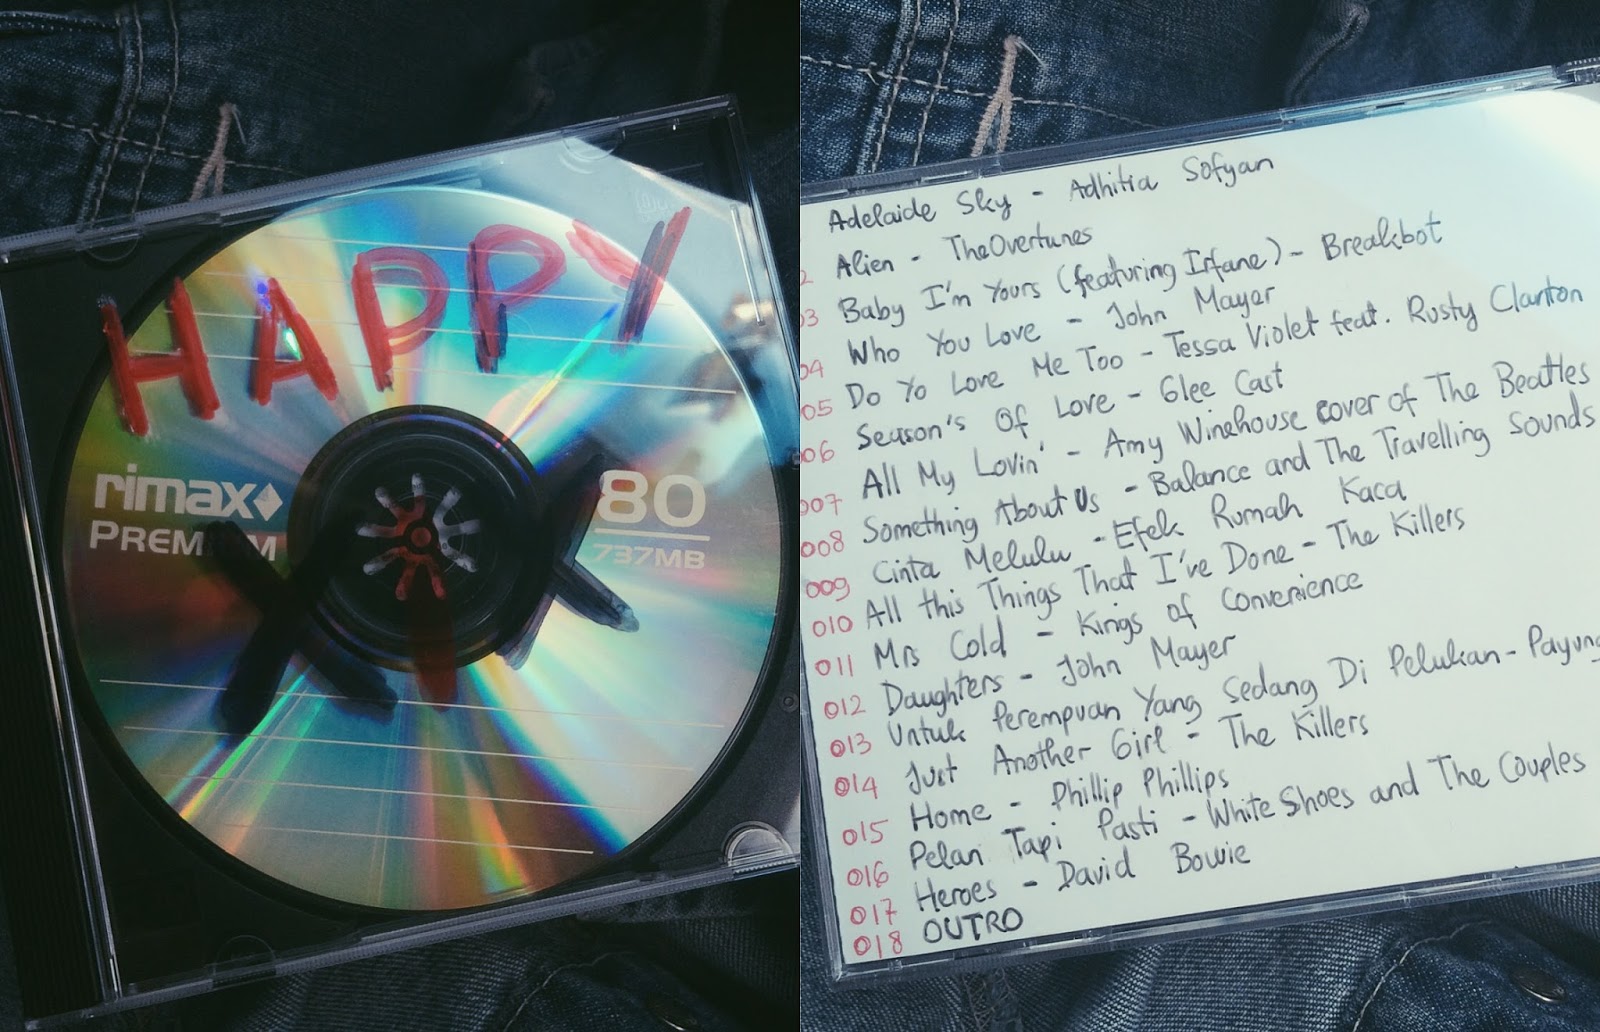 HAPPY
rimax
PREMIUM
80
737MB
XIX
Adelaide Sky - Adhitia Sofyan
2 Alien - TheOvertunes
03 Baby I'm Yours (featuring Irfane) - Breakbot
04 Who You Love - John Mayer
05 Do Yo Love Me Too - Tessa Violet feat. Rusty Clanton
06 Season's Of Love - Glee Cast
007 All My Lovin' - Amy Winehouse cover of The Beatles
008 Something About Us - Balance and The Travelling Sounds
009 Cinta Melulu - Efek Rumah Kaca
010 All this Things That I've Done - The Killers
011 Mrs Cold - Kings of Convenience
012 Daughters - John Mayer
013 Untuk Perempuan Yang Sedang Di Pelukan - Payung
014 Just Another Girl - The Killers
015 Home - Phillip Phillips
016 Pelan Tapi Pasti - White Shoes and The Couples
017 Heroes - David Bowie
018 OUTRO